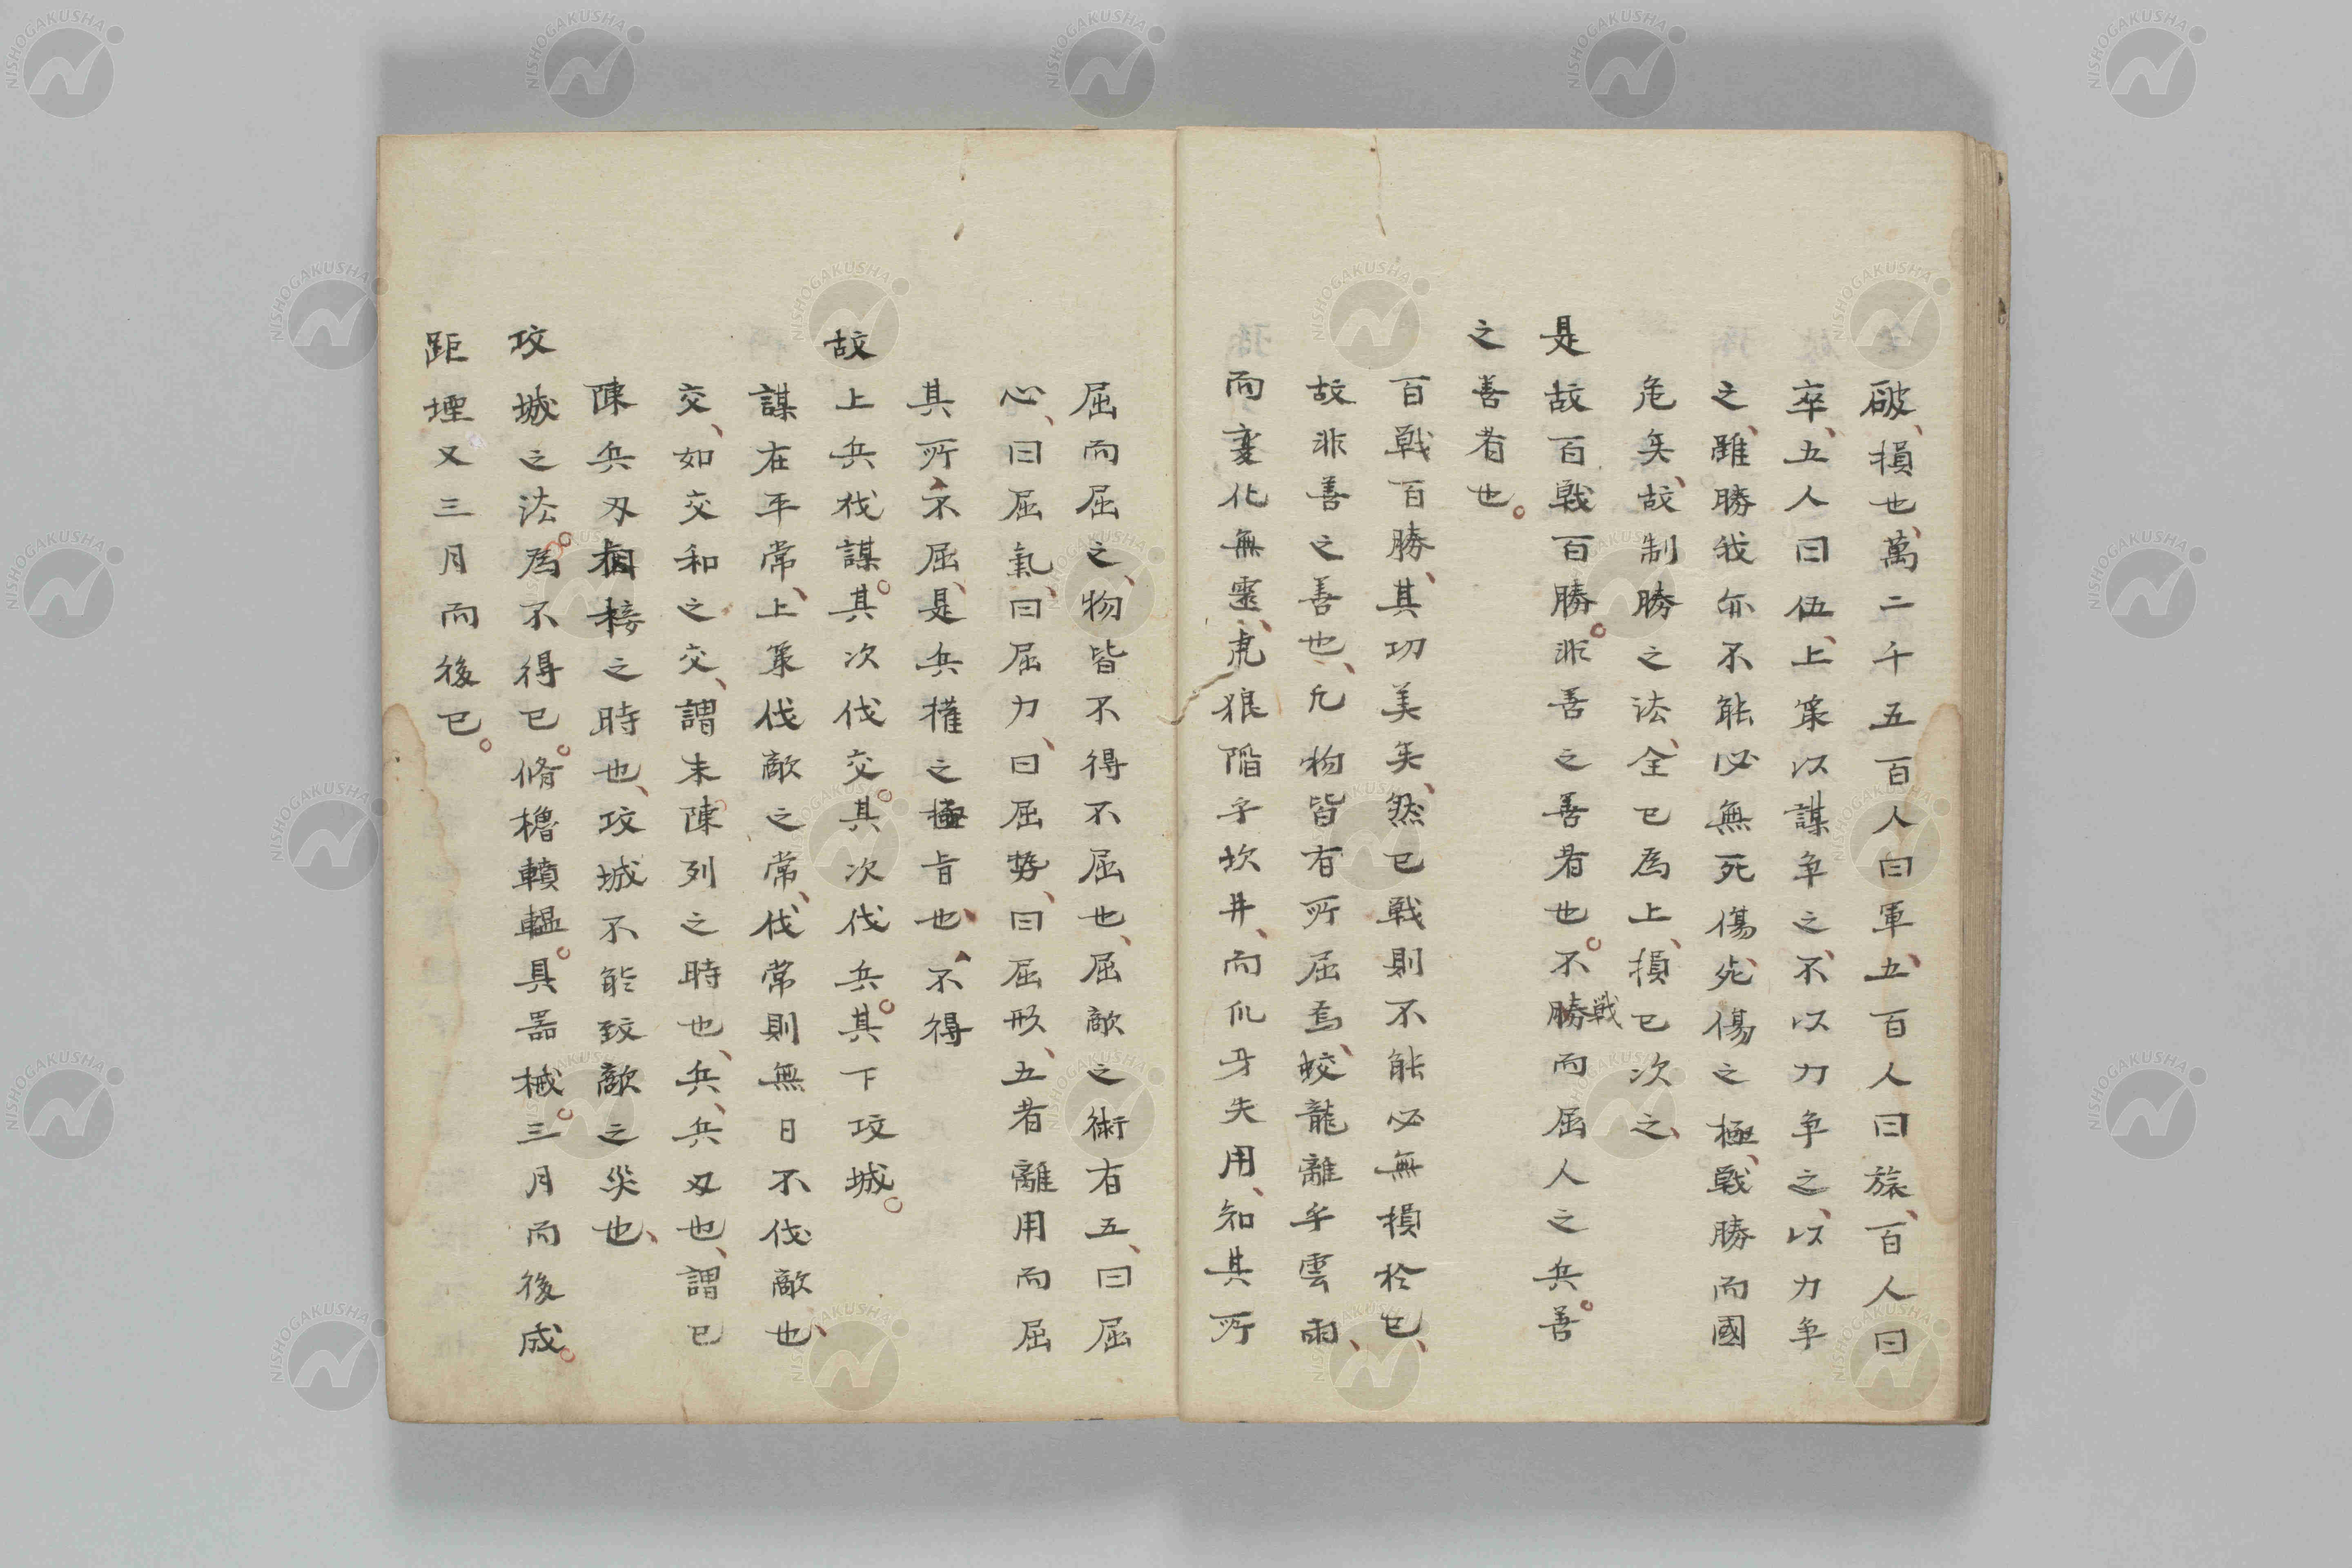 破、損也、萬二千五百人曰軍、五百人曰旅、百人曰
卒、五人曰伍、上策以謀争之、不以力争之、以力争
之、雖勝我亦不能必無死傷、死傷之極、戰勝而國
危矣、故制勝之法、全已為上、損已次之、
是故百戰百勝。非善之善者也。不戦勝而屈人之兵。善
之善者也。
百戰百勝、其功美矣、然已戰則不能必無損於已、
故非善之善也、凡物皆有所屈焉、蛟龍離乎雲雨、
而變化無靈、虎狼陷乎坎井、而爪牙失用、知其所
屈而屈之、物皆不得不屈也、屈敵之術有五、曰屈
心、曰屈氣、曰屈力、曰屈勢、曰屈形、五者離用而屈
其所不屈、是兵權之極旨也、不得
故上兵伐謀。其次伐交。其次伐兵。其下攻城。
謀在平常、上策伐敵之常、伐常則無日不伐敵也、
交、如交和之交、謂未陳列之時也、兵、兵刃也、謂已
陳兵刃相接之時也、攻城不能致敵之災也、
攻城之法。為不得已。脩櫓轒轀。具器械。三月而後成。
距堙又三月而後已。
NISHOGAKUSHA